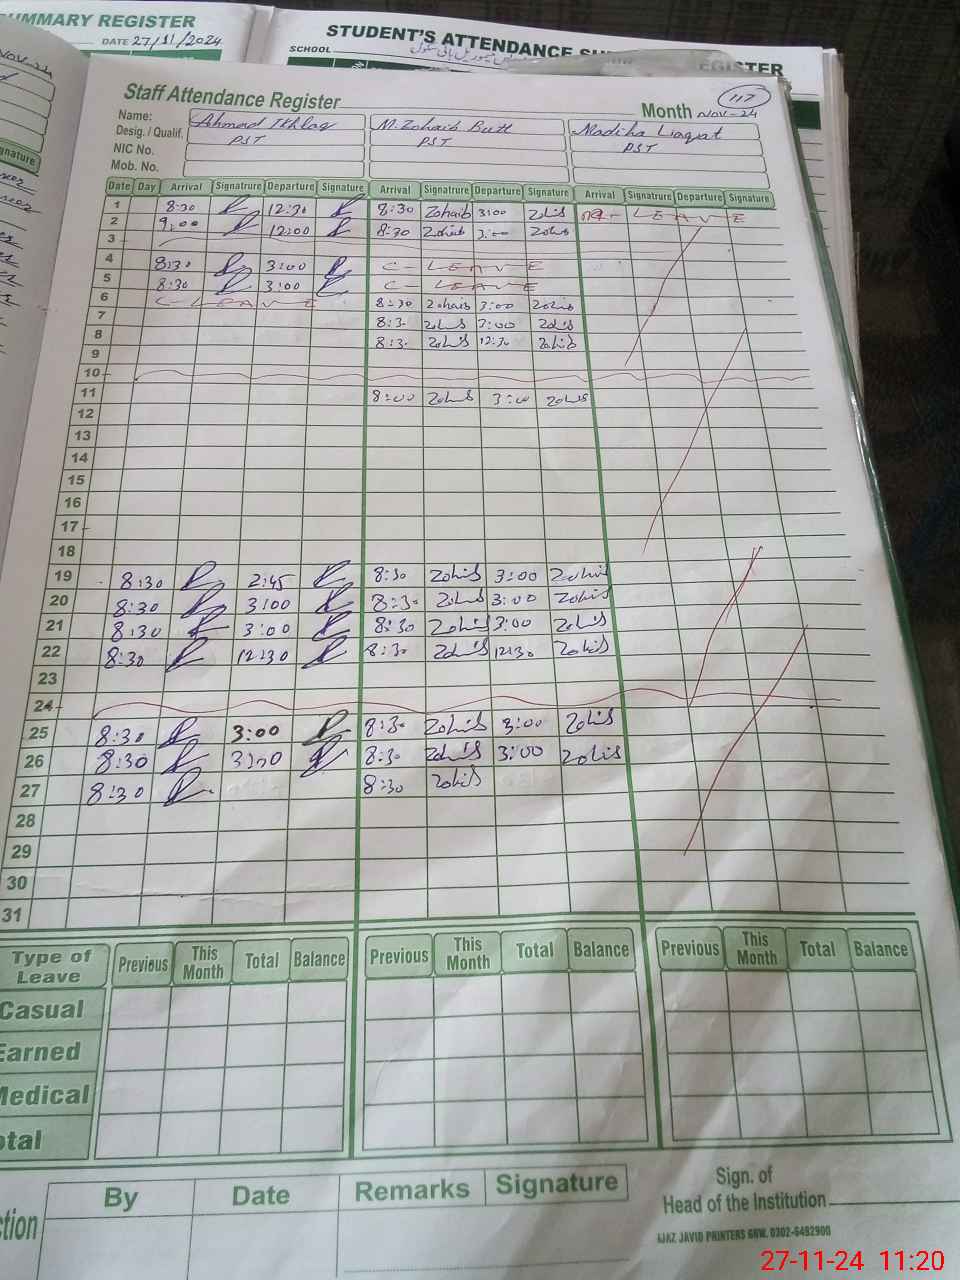 SUMMARY REGISTER
DATE 27/11/2024
STUDENT'S ATTENDANCE REGISTER
SCHOOL
Staff Attendance Register
Month NOV-24
117
Name: Ahmad Ikhlaq M. Zohaib Butt Nadiha Liaqat
Desig. / Qualif. PST PST PST
NIC No.
Mob. No.
Date Day Arrival Signatrure Departure Signature Arrival Signatrure Departure Signature Arrival Signatrure Departure Signature
1 8:30 12:30 8:30 Zohaib 3:00 Zohib LEAVE
2 9:00 12:00 8:30 Zohaib 3:00 Zohib
3
4 8:30 3:00 C-LEAVE
5 8:30 3:00 C-LEAVE
6 C-LEAVE 8:30 Zohaib 3:00 Zohib
7 8:30 Zohib 3:00 Zohib
8 8:30 Zohib 12:30 Zohib
9
10
11 8:00 Zohib 3:00 Zohib
12
13
14
15
16
17
18
19 8:30 2:45 8:30 Zohib 3:00 Zohib
20 8:30 3:00 8:30 Zohib 3:00 Zohib
21 8:30 3:00 8:30 Zohib 3:00 Zohib
22 8:30 12:30 8:30 Zohib 12:30 Zohib
23
24
25 8:30 3:00 8:30 Zohib 3:00 Zohib
26 8:30 3:00 8:30 Zohib 3:00 Zohib
27 8:30 8:30 Zohib
28
29
30
31
Type of Leave Previous This Month Total Balance Previous This Month Total Balance Previous This Month Total Balance
Casual
Earned
Medical
otal
By Date Remarks Signature
ction
Sign. of
Head of the Institution
AJAZ JAVID PRINTERS GRW. 0302-6492900
27-11-24 11:20